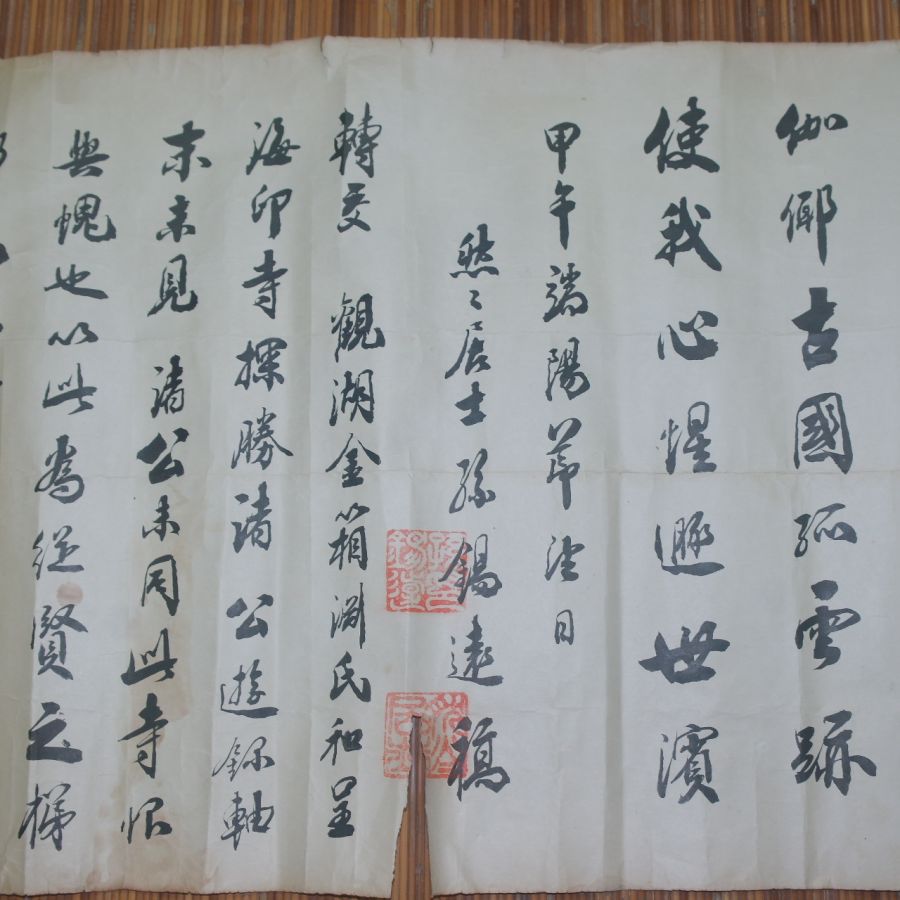 伽倻古國孤雲跡
使我心惺遯世濱
甲午端陽節望日
然々居士孫錫遠稿
轉交 觀湖金箱淵氏和呈
海印寺探勝諸公遊錄軸
末未見 諸公未同此寺恨
與愧也以此為從賢之梯